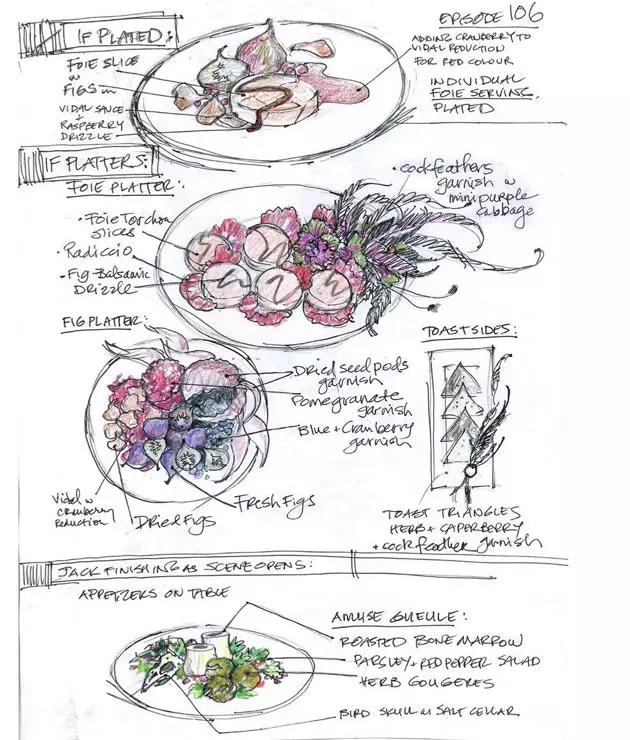 EPISODE 106
IF PLATED:
FOIE SLICE
W
FIGS
VIDAL SAUCE
+
RASPBERRY
DRIZZLE
ADDING CRANBERRY TO
VIDAL REDUCTION
FOR RED COLOUR
INDIVIDUAL
FOIE SERVING,
PLATED
IF PLATTERS:
FOIE PLATTER:
• Foie Torchon
slices
• Radiccio
• Fig-Balsamic
Drizzle
• cockfeathers
garnish w
mini purple
cabbage
FIG PLATTER:
Dried seed pods
garnish
Pomegranate
garnish
Blue + Cranberry
garnish
Fresh Figs
Dried Figs
Vidal w
cranberry
Reduction
TOAST SIDES:
TOAST TRIANGLES
HERB + CAPERBERRY
+ cockfeather garnish
JACK FINISHING AS SCENE OPENS:
APPETIZERS ON TABLE
AMUSE GUEULE:
ROASTED BONE MARROW
PARSLEY + RED PEPPER SALAD
HERB GOUGERES
BIRD SKULL SALT CELLAR